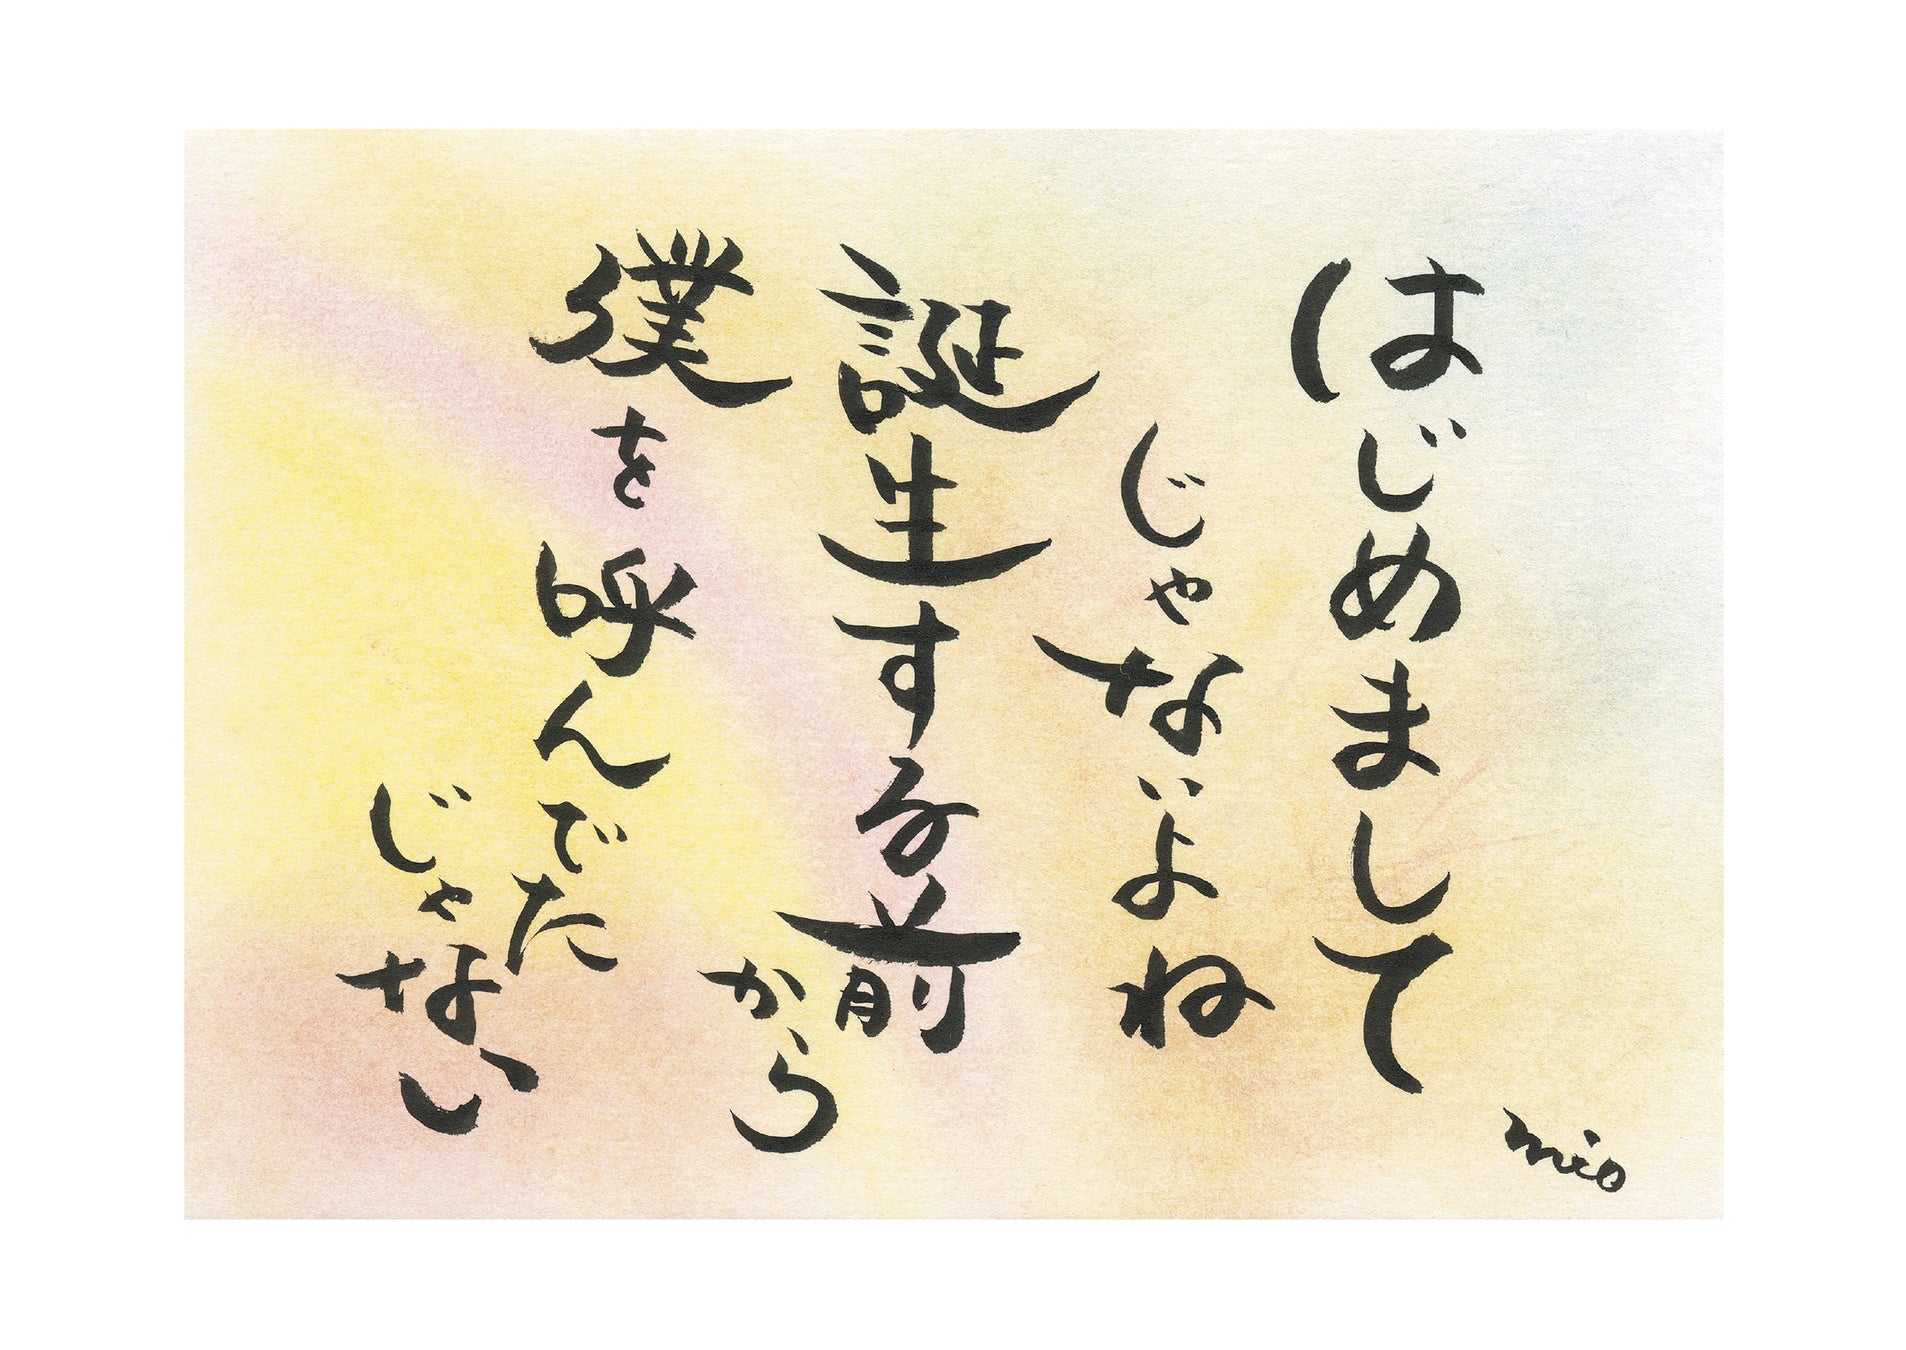 はじめまして
じゃないよね
誕生する前
から
僕を呼んでた
じゃない
mio